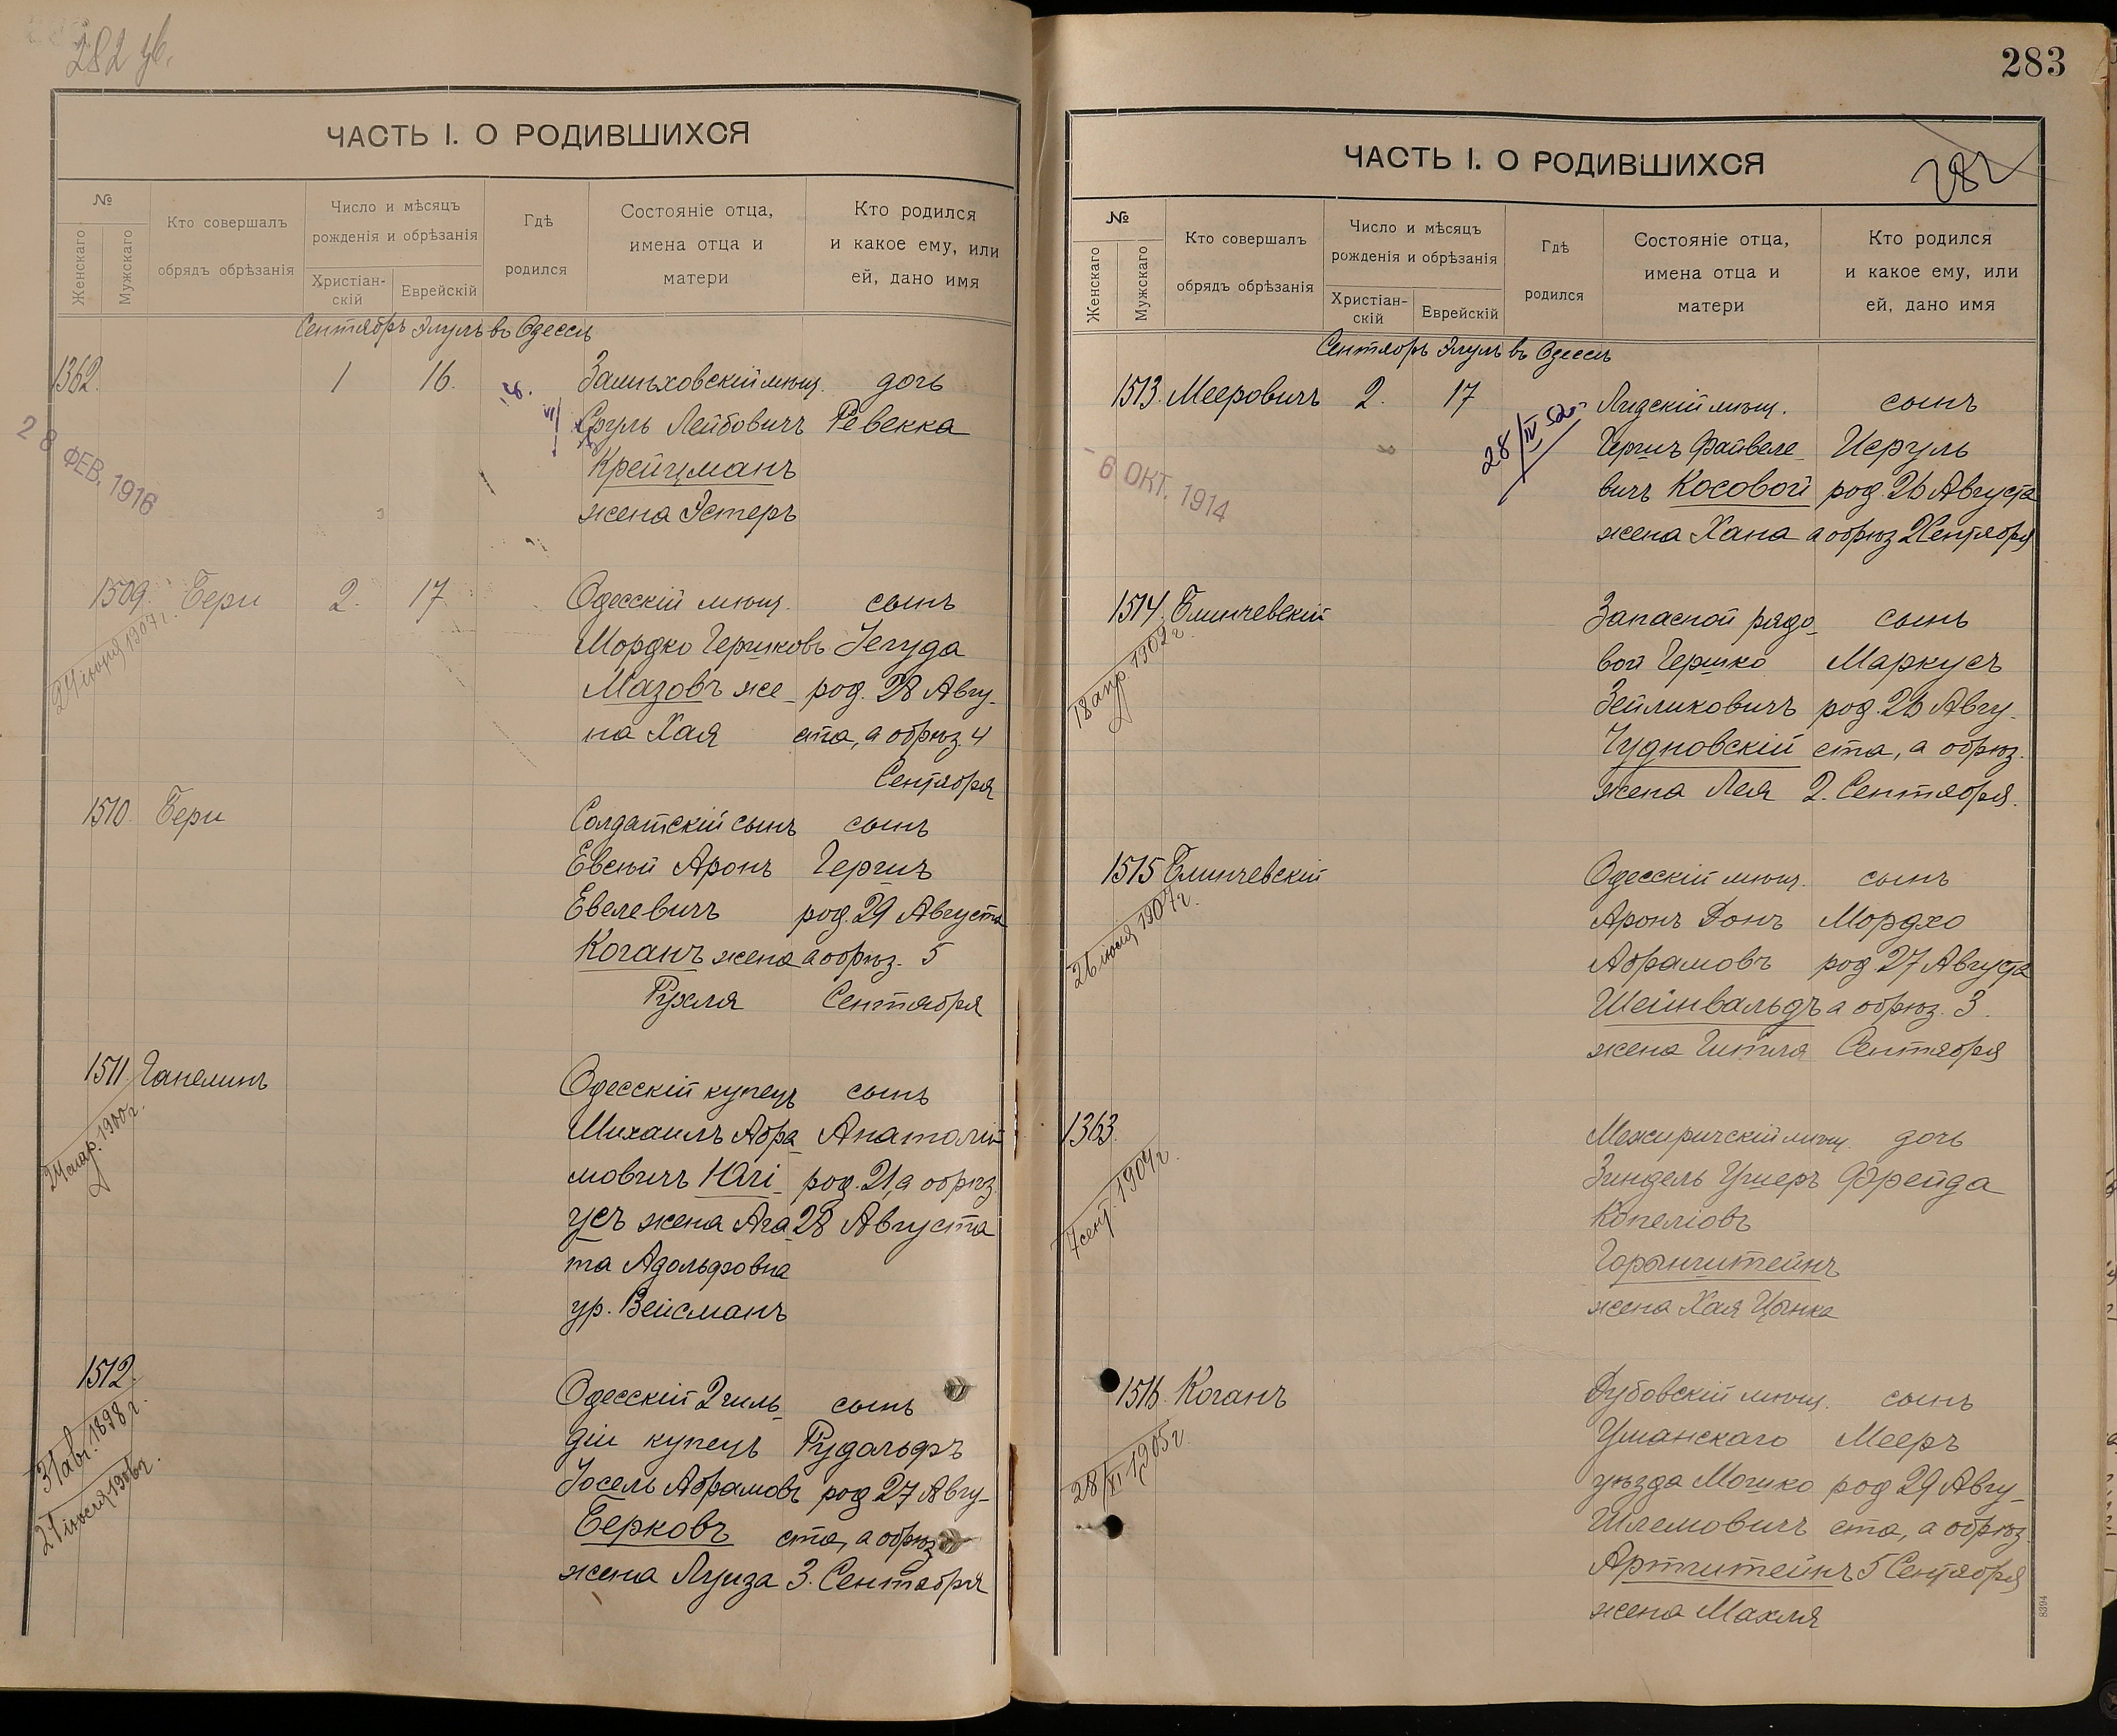 282 уб.
ЧАСТЬ I. О РОДИВШИХСЯ
№
Женскаго
Мужскаго
Кто совершалъ
обрядъ обрѣзанія
Число и мѣсяцъ
рожденія и обрѣзанія
Христіан-
скій
Еврейскій
Гдѣ
родился
Состояніе отца,
имена отца и
матери
Кто родился
и какое ему, или
ей, дано имя
Сентябрь Элулъ въ Одессѣ
1362. 1 16. Замѣховскій мѣщ. дочь
Сруль Лейбовичъ Ревекка
Крейцманъ
жена Эстеръ
28 ФЕВ. 1916
1509. Бери 2. 17 Одесскій мѣщ. сынъ
Мордко Гершковъ Іегуда
Мазовъ же- род. 28 Авгу-
на Хая ста, а обрѣз. 4
Сентября
1907 г.
1510. Бери Солдатскій сынъ сынъ
Евсѣй Аронъ Гершъ
Евелевичъ род. 29 Августа
Коганъ жена а обрѣз. 5
Рухля Сентября
1511. Ганелинъ Одесскій купецъ сынъ
Михаилъ Абра- Анатолій
мовичъ Юлі- род. 21, а обрѣз.
усъ жена Ага- 28 Августа
та Адольфовна
ур. Вейсманъ
24 мар. 1900 г.
1512. Одесскій 2 гиль- сынъ
діи купецъ Рудольфъ
Іосель Абрамовъ род 27 Авгу-
Берковъ ста, а обрѣз
жена Луиза 3. Сентября
31 авг. 1898 г.
1906 г.
283
282
ЧАСТЬ I. О РОДИВШИХСЯ
№
Женскаго
Мужскаго
Кто совершалъ
обрядъ обрѣзанія
Число и мѣсяцъ
рожденія и обрѣзанія
Христіан-
скій
Еврейскій
Гдѣ
родился
Состояніе отца,
имена отца и
матери
Кто родился
и какое ему, или
ей, дано имя
Сентябрь Элулъ въ Одессѣ
1513. Мееровичъ 2. 17 Лидскій мѣщ. сынъ
Гершъ Файвеле- Исруль
вичъ Косовой род. 26 Августа
жена Хана а обрѣз 2 Сентября
28/IV 52
- 6 ОКТ. 1914
1514. Блинчевскій Запасной рядо- сынъ
вой Гершко Маркусъ
Зейликовичъ род. 26 Авгу-
Чудновскій ста, а обрѣз.
жена Лея 2. Сентября.
18 апр. 1902 г.
1515 Блинчевскій Одесскій мѣщ. сынъ
Аронъ Донъ Мордхо
Абрамовъ род 27 Августа
Шейнвальдъ а обрѣз. 3.
жена Гитля Сентября
26 1907 г.
1363. Межиричскій мѣщ. дочь
Зиндель Ушеръ Фрейда
Копеліовъ
Горынштейнъ
жена Хая Цынка
7 сент. 1904 г.
1516. Коганъ Дубовскій мѣщ. сынъ
Уманскаго Мееръ
уѣзда Мошко род 29 Авгу-
Шлемовичъ ста, а обрѣз.
Артштейнъ 5 Сентября
жена Махля
28/XI 1905 г.
8394